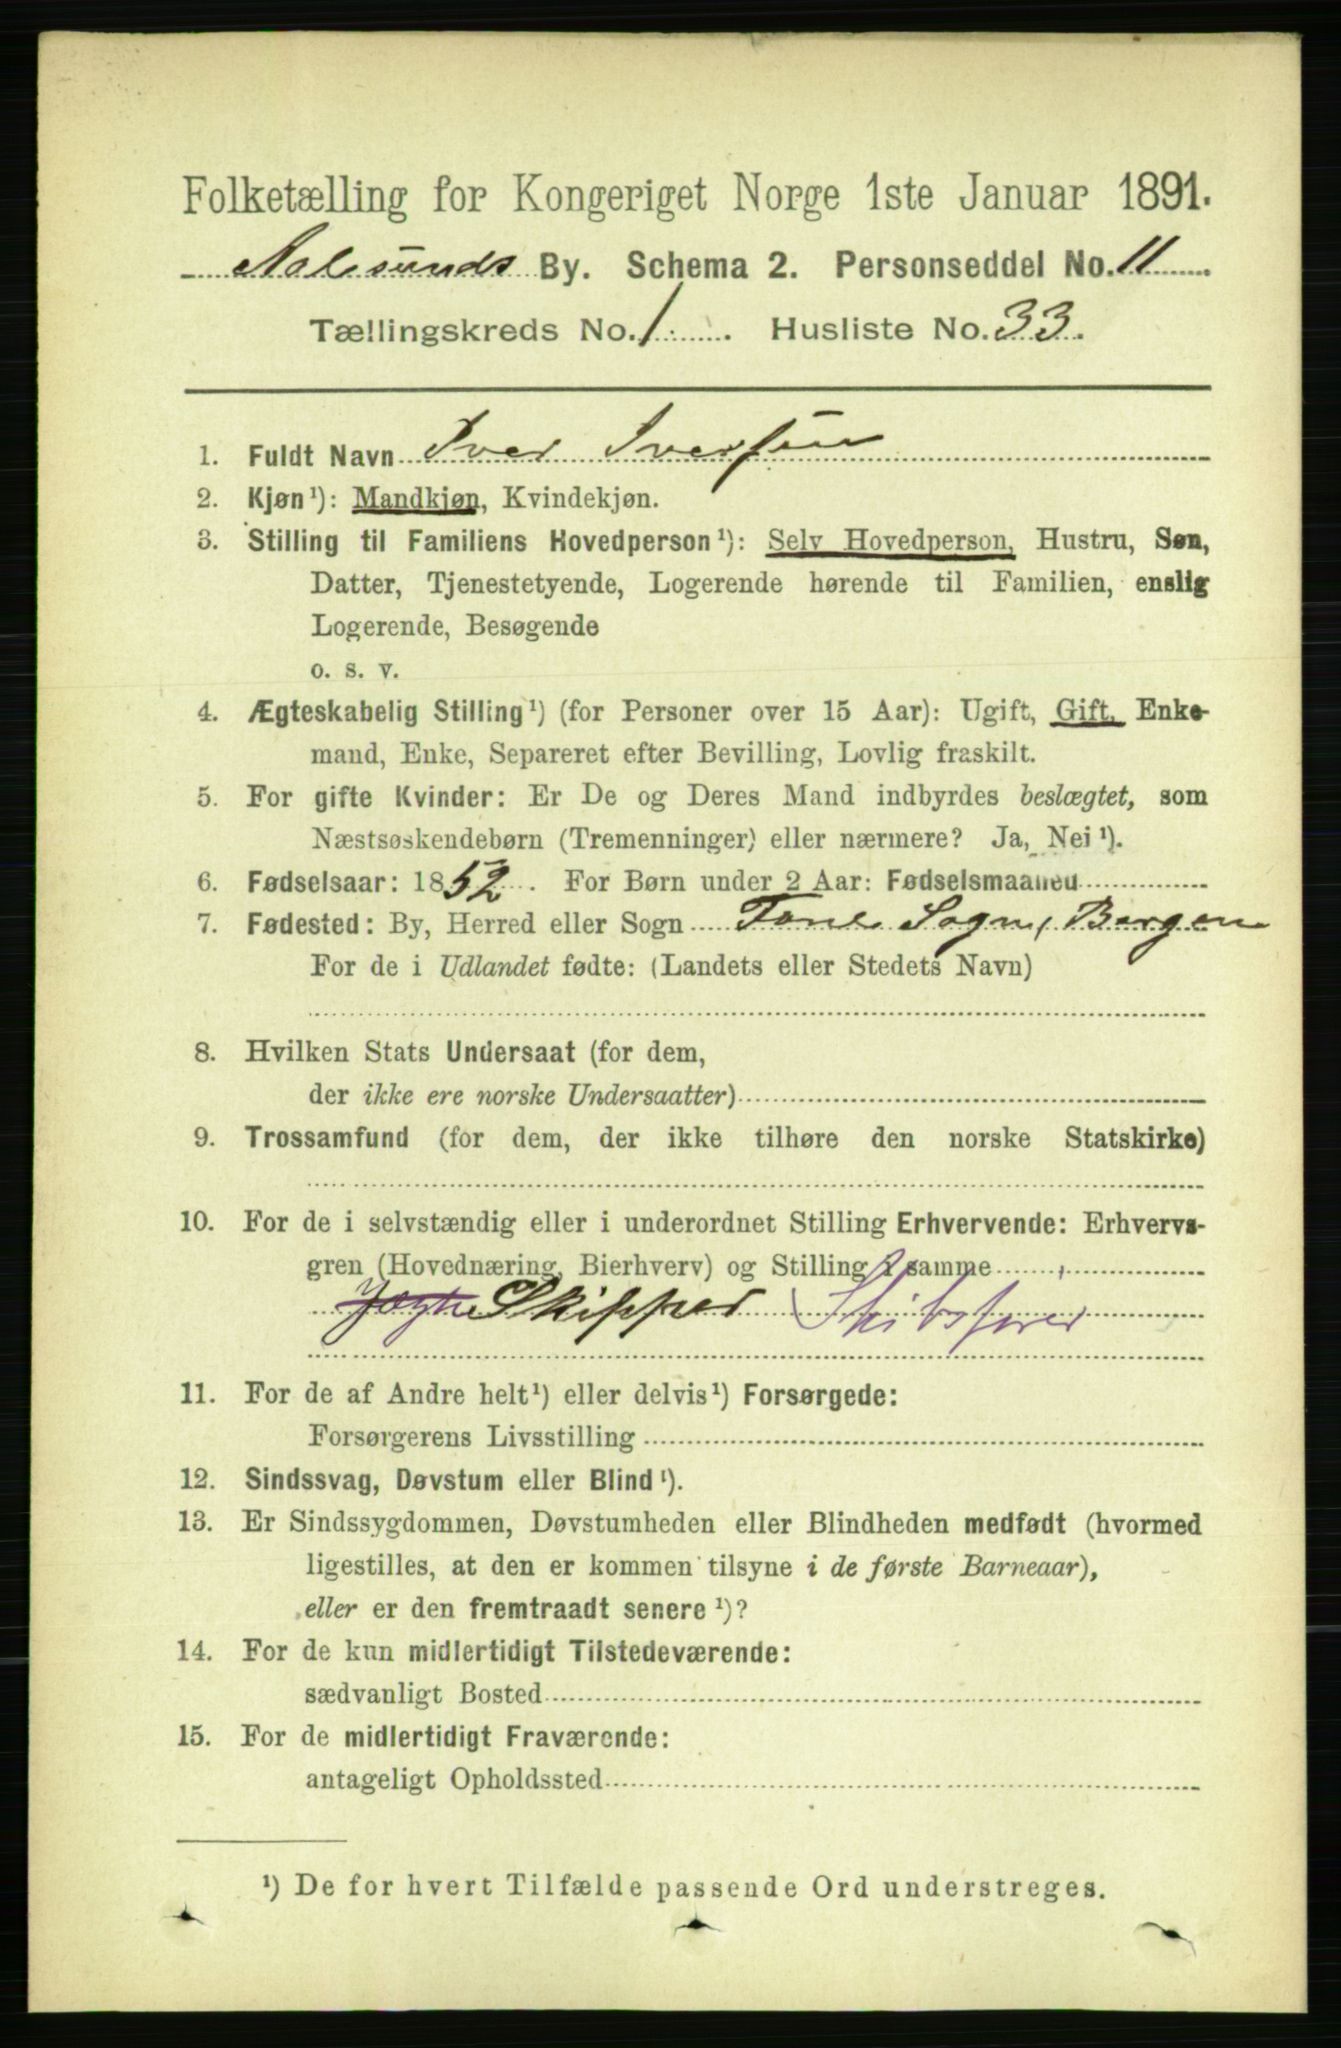 Folketælling for Kongeriget Norge 1ste Januar 1891.
Aalesunds By. Schema 2. Personseddel No. 11
Tællingskreds No. 1. Husliste No. 33.
1. Fuldt Navn Iver Iversen
2. Kjøn¹): Mandkjøn, Kvindekjøn.
3. Stilling til Familiens Hovedperson¹): Selv Hovedperson, Hustru, Søn,
Datter, Tjenestetyende, Logerende hørende til Familien, enslig
Logerende, Besøgende
o. s. v.
4. Ægteskabelig Stilling¹) (for Personer over 15 Aar): Ugift, Gift, Enke-
mand, Enke, Separeret efter Bevilling, Lovlig fraskilt.
5. For gifte Kvinder: Er De og Deres Mand indbyrdes beslægtet, som
Næstsøskendebørn (Tremenninger) eller nærmere? Ja, Nei¹).
6. Fødselsaar: 1852. For Børn under 2 Aar: Fødselsmaaned
7. Fødested: By, Herred eller Sogn Sogn, Bergen
For de i Udlandet fødte: (Landets eller Stedets Navn)
8. Hvilken Stats Undersaat (for dem,
der ikke ere norske Undersaatter)
9. Trossamfund (for dem, der ikke tilhøre den norske Statskirke)
10. For de i selvstændig eller i underordnet Stilling Erhvervende: Erhvervs-
gren (Hovednæring, Bierhverv) og Stilling i samme
Jagte Skipper Skibsfører
11. For de af Andre helt¹) eller delvis¹) Forsørgede:
Forsørgerens Livsstilling
12. Sindssvag, Døvstum eller Blind¹).
13. Er Sindssygdommen, Døvstumheden eller Blindheden medfødt (hvormed
ligestilles, at den er kommen tilsyne i de første Barneaar),
eller er den fremtraadt senere¹)?
14. For de kun midlertidigt Tilstedeværende:
sædvanligt Bosted
15. For de midlertidigt Fraværende:
antageligt Opholdssted
¹) De for hvert Tilfælde passende Ord understreges.